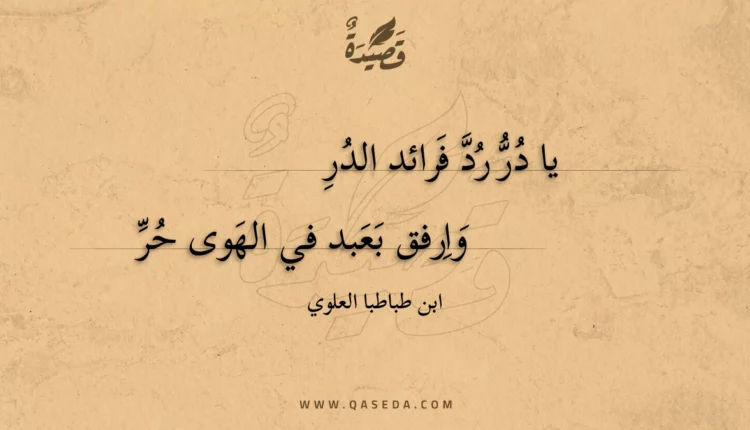 قَصِيْدَةٌ
يا دُرُّ رُدَّ فَرائد الدُرِ
وَاِرفق بَعَبد في الهَوى حُرِّ
ابن طباطبا العلوي
WWW.QASEDA.COM